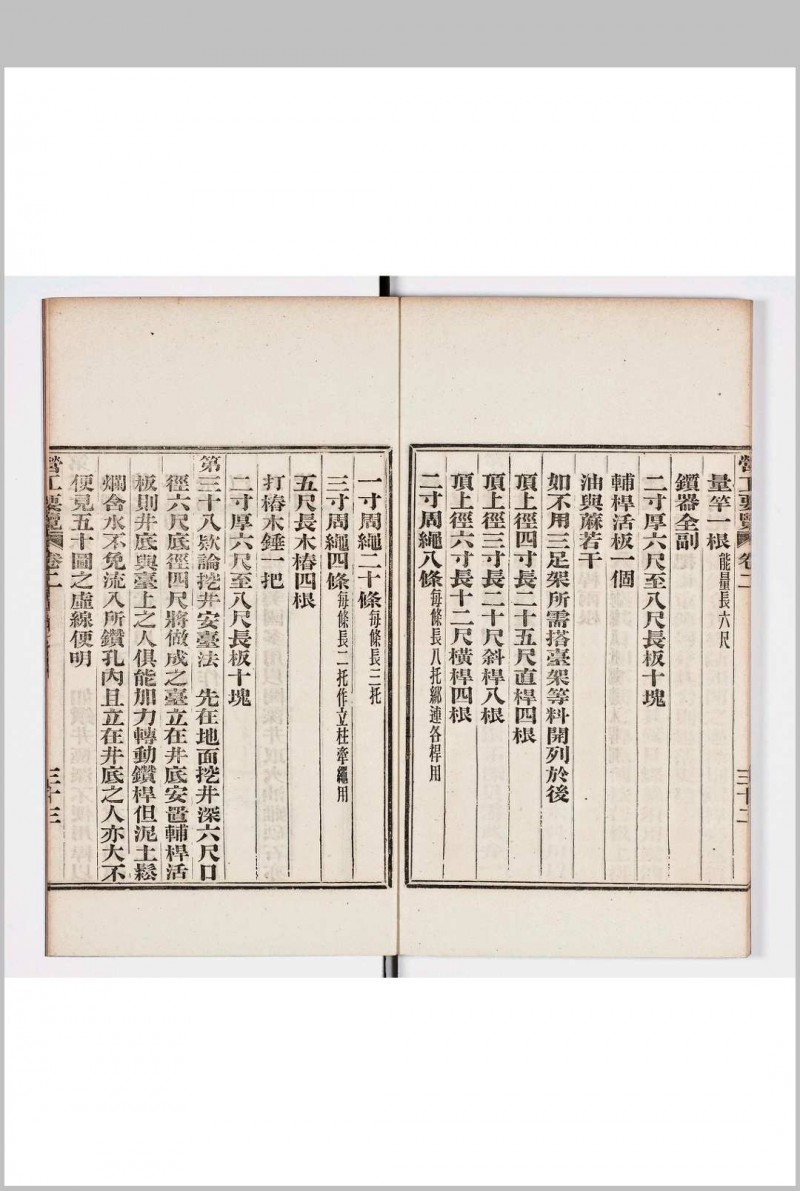 營工要覽 卷二 三十二
量竿一根能量長六尺
鑽器全副
二寸厚六尺至八尺長板十塊
輔桿活板一個
油與蔴若干
如不用三足架所需搭臺架等料開列於後
頂上徑四寸長二十五尺直桿四根
頂上徑三寸長二十尺斜桿八根
頂上徑六寸長十二尺橫桿四根
二寸周繩八條每條長八托綁連各桿用
一寸周繩二十條每條長三托
三寸周繩四條每條長二托作立柱牽繩用
五尺長木樁四根
打樁木錘一把
二寸厚六尺至八尺長板十塊
第三十八欵論挖井安臺法 先在地面挖井深六尺口
徑六尺底徑四尺將做成之臺立在井底安置輔桿活
板則井底與臺上之人俱能加力轉動鑽桿但泥土鬆
爛含水不免流入所鑽孔內且立在井底之人亦大不
便見五十圖之虛線便明
營工要覽 卷二 三十三